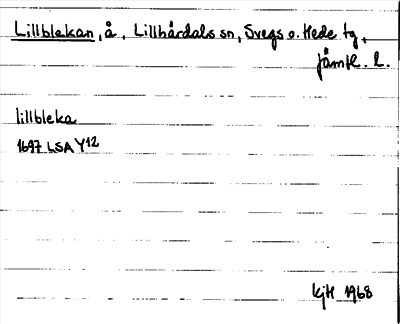 Lillblekan, å, Lillhärdals sn, Svegs o. Hede tg,
Jämtl. l.
lillbleka
1697 LSA Y12
kjH 1968